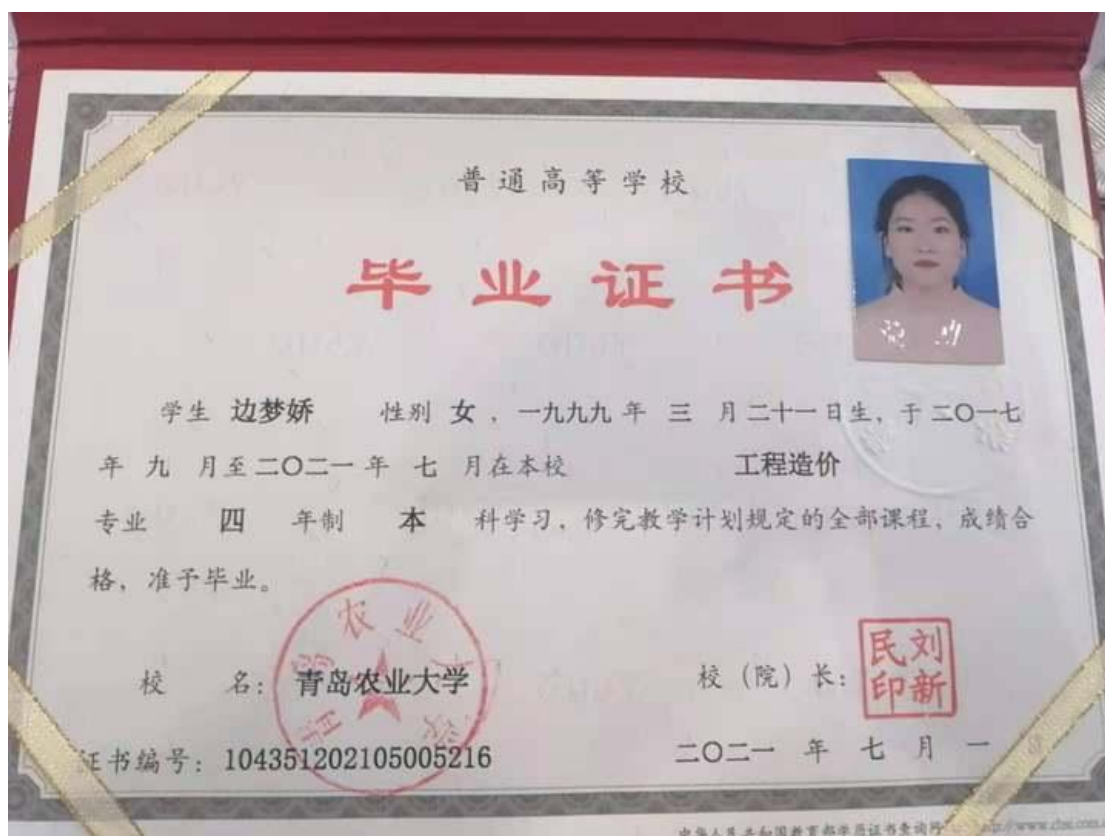 普通高等学校
毕业证书
学生 边梦娇 性别 女 ，一九九九 年 三 月 二十一 日生，于 二〇一七
年 九 月至 二〇二一 年 七 月在本校 工程造价
专业 四 年制 本 科学习，修完教学计划规定的全部课程，成绩合
格，准予毕业。
校 名： 青岛农业大学
青岛农业大学
校（院）长：
刘新民印
证书编号：104351202105005216
二〇二一 年 七 月 一
中华人民共和国教育部学历证书查询网
http://www.chsi.com.c